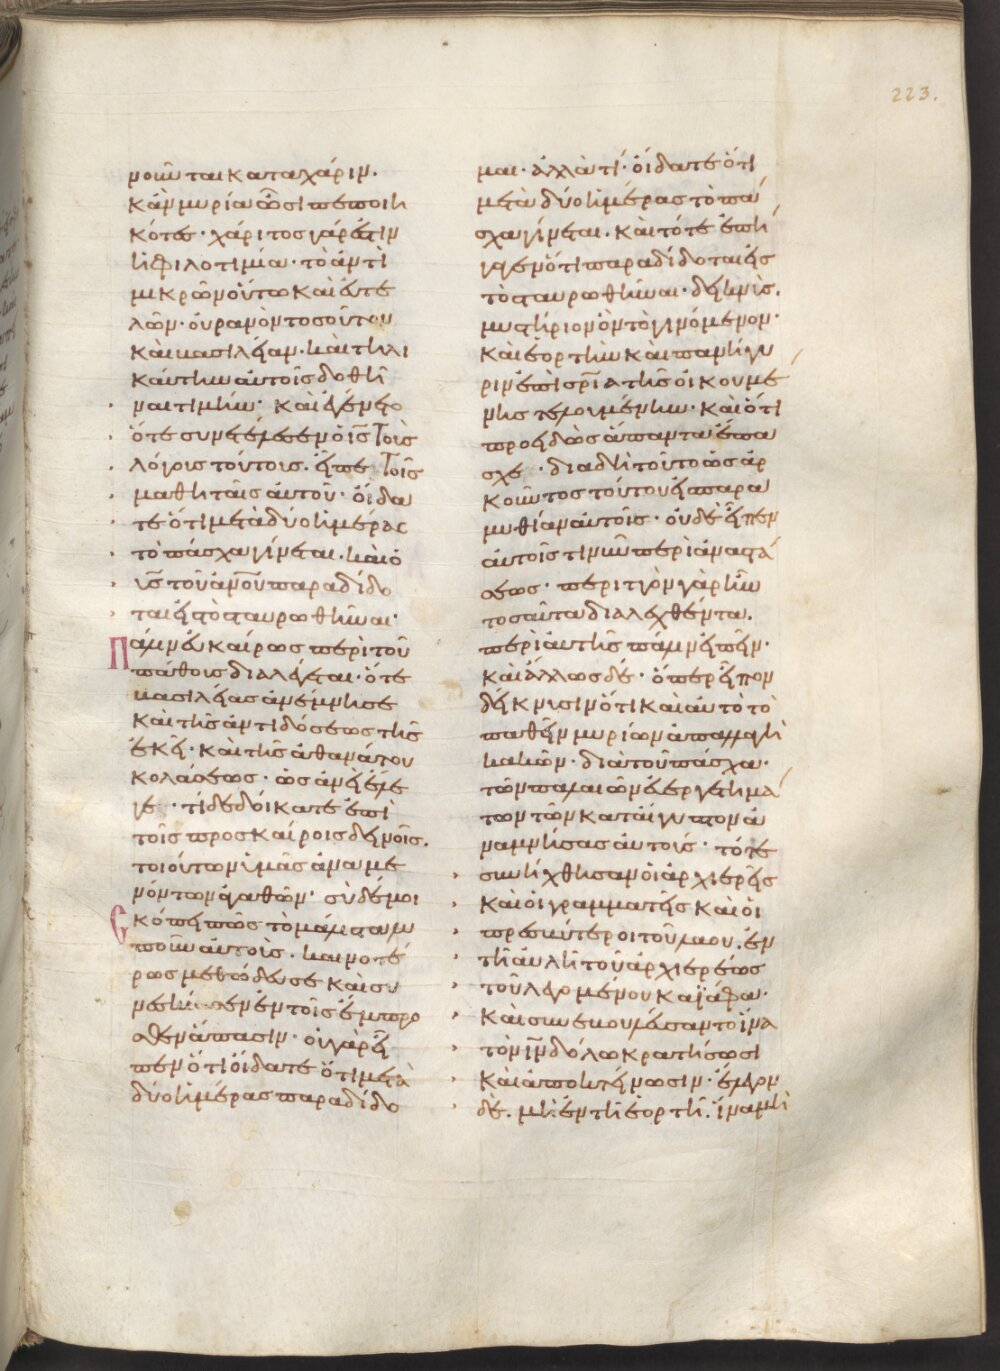 223.
νοῦνται κατα χάριν.
κἂν μυρία ὦσι πεποιη
κότες· χάριτος γάρ ἐστιν
ἡ φιλοτιμία· τὸ ἀντὶ
μικρῶν οὕτω καὶ εὐτε
λῶν· οὐρανὸν τοσοῦτον
καὶ βασιλείαν· καὶ τηλι
καύτην αὐτοῖς δοθῆ
ναι τιμήν· καὶ ἐγένετο
ὅτε συνετέλεσεν ὁ ἰς̅ τοὺς
λόγους τούτους. εἶπε τοῖς
μαθηταῖς αὐτοῦ· οἴδα
τε ὅτι μετὰ δύο ἡμέρας
τὸ πάσχα γίνεται. καὶ ὁ
υς̅ τοῦ ἀν̅ου παραδίδο
ται εἰς τὸ σταυρωθῆναι·
Πάλιν εὐκαίρως περὶ τοῦ
πάθους διαλέγεται· ὅτε
βασιλείας ἀνέμνησε
καὶ τῆς ἀντιδόσεως τῆς
ἐκεῖ· καὶ τῆς ἀθανάτου
κολάσεως· ὡς ἂν εἰ ἔλε
γε· τί δεδοίκατε ἐπὶ
τοῖς προσκαίροις δεινοῖς.
τοιούτων ὑμᾶς ἀναμε
νόντων ἀγαθῶν· σὺ δέ μοι
Σκόπει πῶς τὸ μάλιστα λυ
ποῦν αὐτοὺς. καινοτέ
ρως μεθώδευσε καὶ συ
νεσκίασεν ἐν τοῖς ἔμπρο
σθεν ἅπασιν· οὐ γὰρ εἶ
πεν ὅτι οἴδατε ὅτι μετὰ
δύο ἡμέρας παραδίδο
μαι· ἀλλὰ τί· οἴδατε ὅτι
μετὰ δύο ἡμέρας τὸ πά
σχα γίνεται. καὶ τότε ἐπή
γαγεν ὅτι παραδίδοται εἰς
τὸ σταυρωθῆναι· δεικνὺς.
μυστήριον ὂν τὸ γινόμενον·
καὶ ἑορτὴν καὶ πανήγυ
ριν ἐπὶ σρ̅ία τῆς οἰκουμέ
νης τελουμένην· καὶ ὅτι
προειδὼς ἅπαντα ἔπα
σχε· διὰ δὴ τοῦτο ὡς ἀρ
κοῦντος τούτου εἰς παρα
μυθίαν αὐτοῖς· οὐδὲ εἶπεν
αὐτοῖς τι νῦν περὶ ἀναστά
σεως· περιττὸν γὰρ ἦν
τοσαῦτα διαλεχθέντα.
περὶ αὐτῆς πάλιν εἰπεῖν·
καὶ ἄλλως δέ· ὅπερ εἶπον
δείκνυσιν ὅτι καὶ αὐτὸ τὸ
παθεῖν μυρίων ἀπαλλαγὴ
κακῶν· διὰ τοῦ πάσχα·
τῶν παλαιῶν εὐεργετημά
των τῶν κατ αἴγυπτον ἀ
ναμνήσας αὐτοὺς· τότε
συνήχθησαν οἱ ἀρχιερεῖς
καὶ οἱ γραμματεῖς καὶ οἱ
πρεσβύτεροι τοῦ λαοῦ. ἐν
τῆ αὐλῆ τοῦ ἀρχιερέως
τοῦ λεγομένου καϊάφα·
καὶ συνεβουλεύσαντο ἵνα
τὸν ἰν̅ δόλω κρατήσωσι
καὶ ἀποκτείνωσιν· ἔλεγον
δὲ. μὴ ἐν τῆ ἑορτῆ. ἵνα μὴ